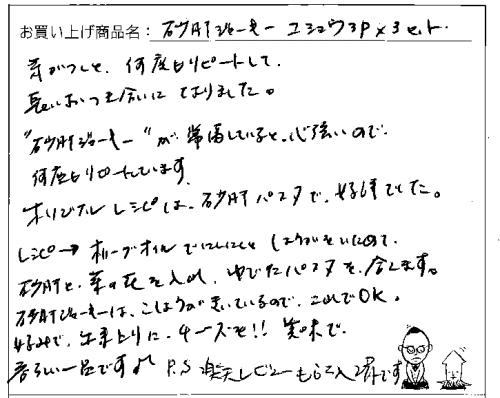 お買い上げ商品名: 砂肝ジャーキー コショウ 3P×3セット.
気がつくと、何度もリピートして、
長いおつき合いになりました。
"砂肝ジャーキー"が常備していると、心強いので、
何度もリピートしています
オリジナルレシピは、砂肝パスタで、好評でした。
レシピ→オリーブオイルでにんにくとしょうがをいためて、
砂肝と、菜の花を入れ、ゆでたパスタを、合えます。
砂肝ジャーキーは、こしょうがきいているので、これでOK。
好みで、出来上りに、チーズを!! 美味で、
春らしい一品です♪ P.S 楽天レビューも記入済です